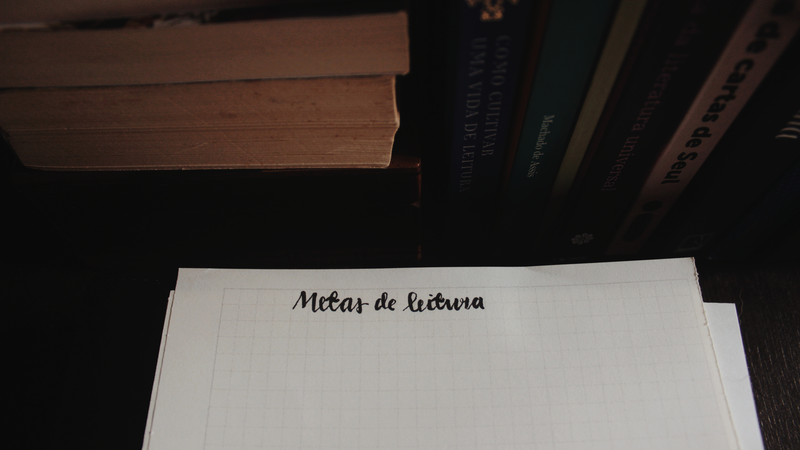 COMO CULTIVAR
UMA VIDA DE LEITURA
Machado de Assis
da literatura universal
de cartas de Seul
Metas de leitura